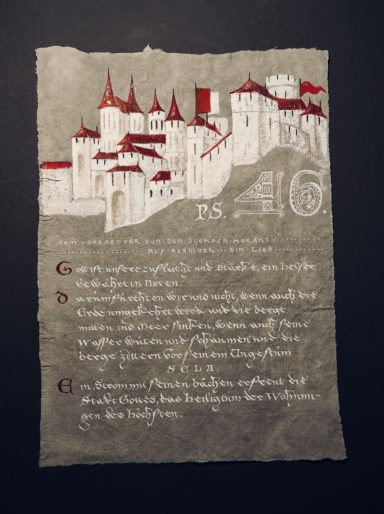 PS. 46.
DEM VORSAENGER VON DEN SOEHNEN KORAHS
AUF ALAMOTH EIN LIED
Gott ist unsere zuflucht und Staerke, ein helfer,
bewährt in Nöten.
darum fürchten wir uns nicht, wenn auch die
Erde umgekehrt wird und die berge
mitten ins Meer sinken, wenn auch seine
Wasser wüten und schäumen und die
berge zittern vor seinem Ungestüm
SELA
Ein Strom mit seinen bächen erfreut die
Stadt Gottes, das heiligtum der Wohnun-
gen des höchsten.